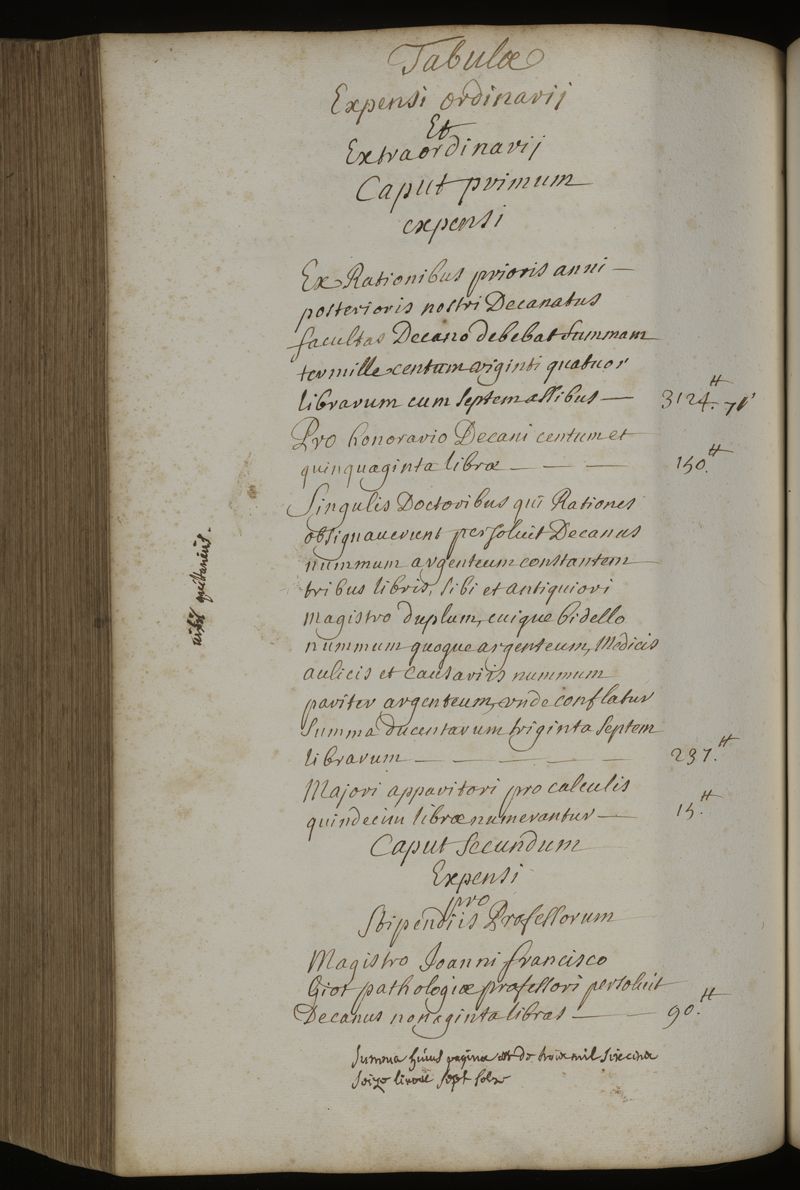 Tabulæ
Expensi ordinarij
Et
Extraordinarij
Caput primum
expensi
Ex Rationibus prioris anni —
posterioris nostri Decanatus
facultas Decano debebat summam
ter mille centum viginti quatuor
librarum cum septem assibus — 3124.ᵗᵗ 7ſ
Pro honorario Decani centum et
quinquaginta libræ — — — 150.ᵗᵗ
Singulis Doctoribus qui Rationes
obsignauerunt persoluit Decanus
nummum argenteum constantem
tribus libris, sibi et antiquiori
magistro duplum, cuique bidello
nummum quoque argenteum, Medicis
aulicis et Causariis nummum
pariter argenteum, vnde conflatur
summa ducentarum triginta septem
librarum — — — — — 237.ᵗᵗ
Majori apparitori pro calculis
quindecim libræ numerantur — 15.ᵗᵗ
Caput secundum
Expensi
pro
Stipendiis Professorum
Magistro Joanni francisco
Giot pathologiæ professori persoluit
Decanus nonaginta libras — — 90.ᵗᵗ
Summa huius paginæ est de trois mil six cens
seize livres sept solz